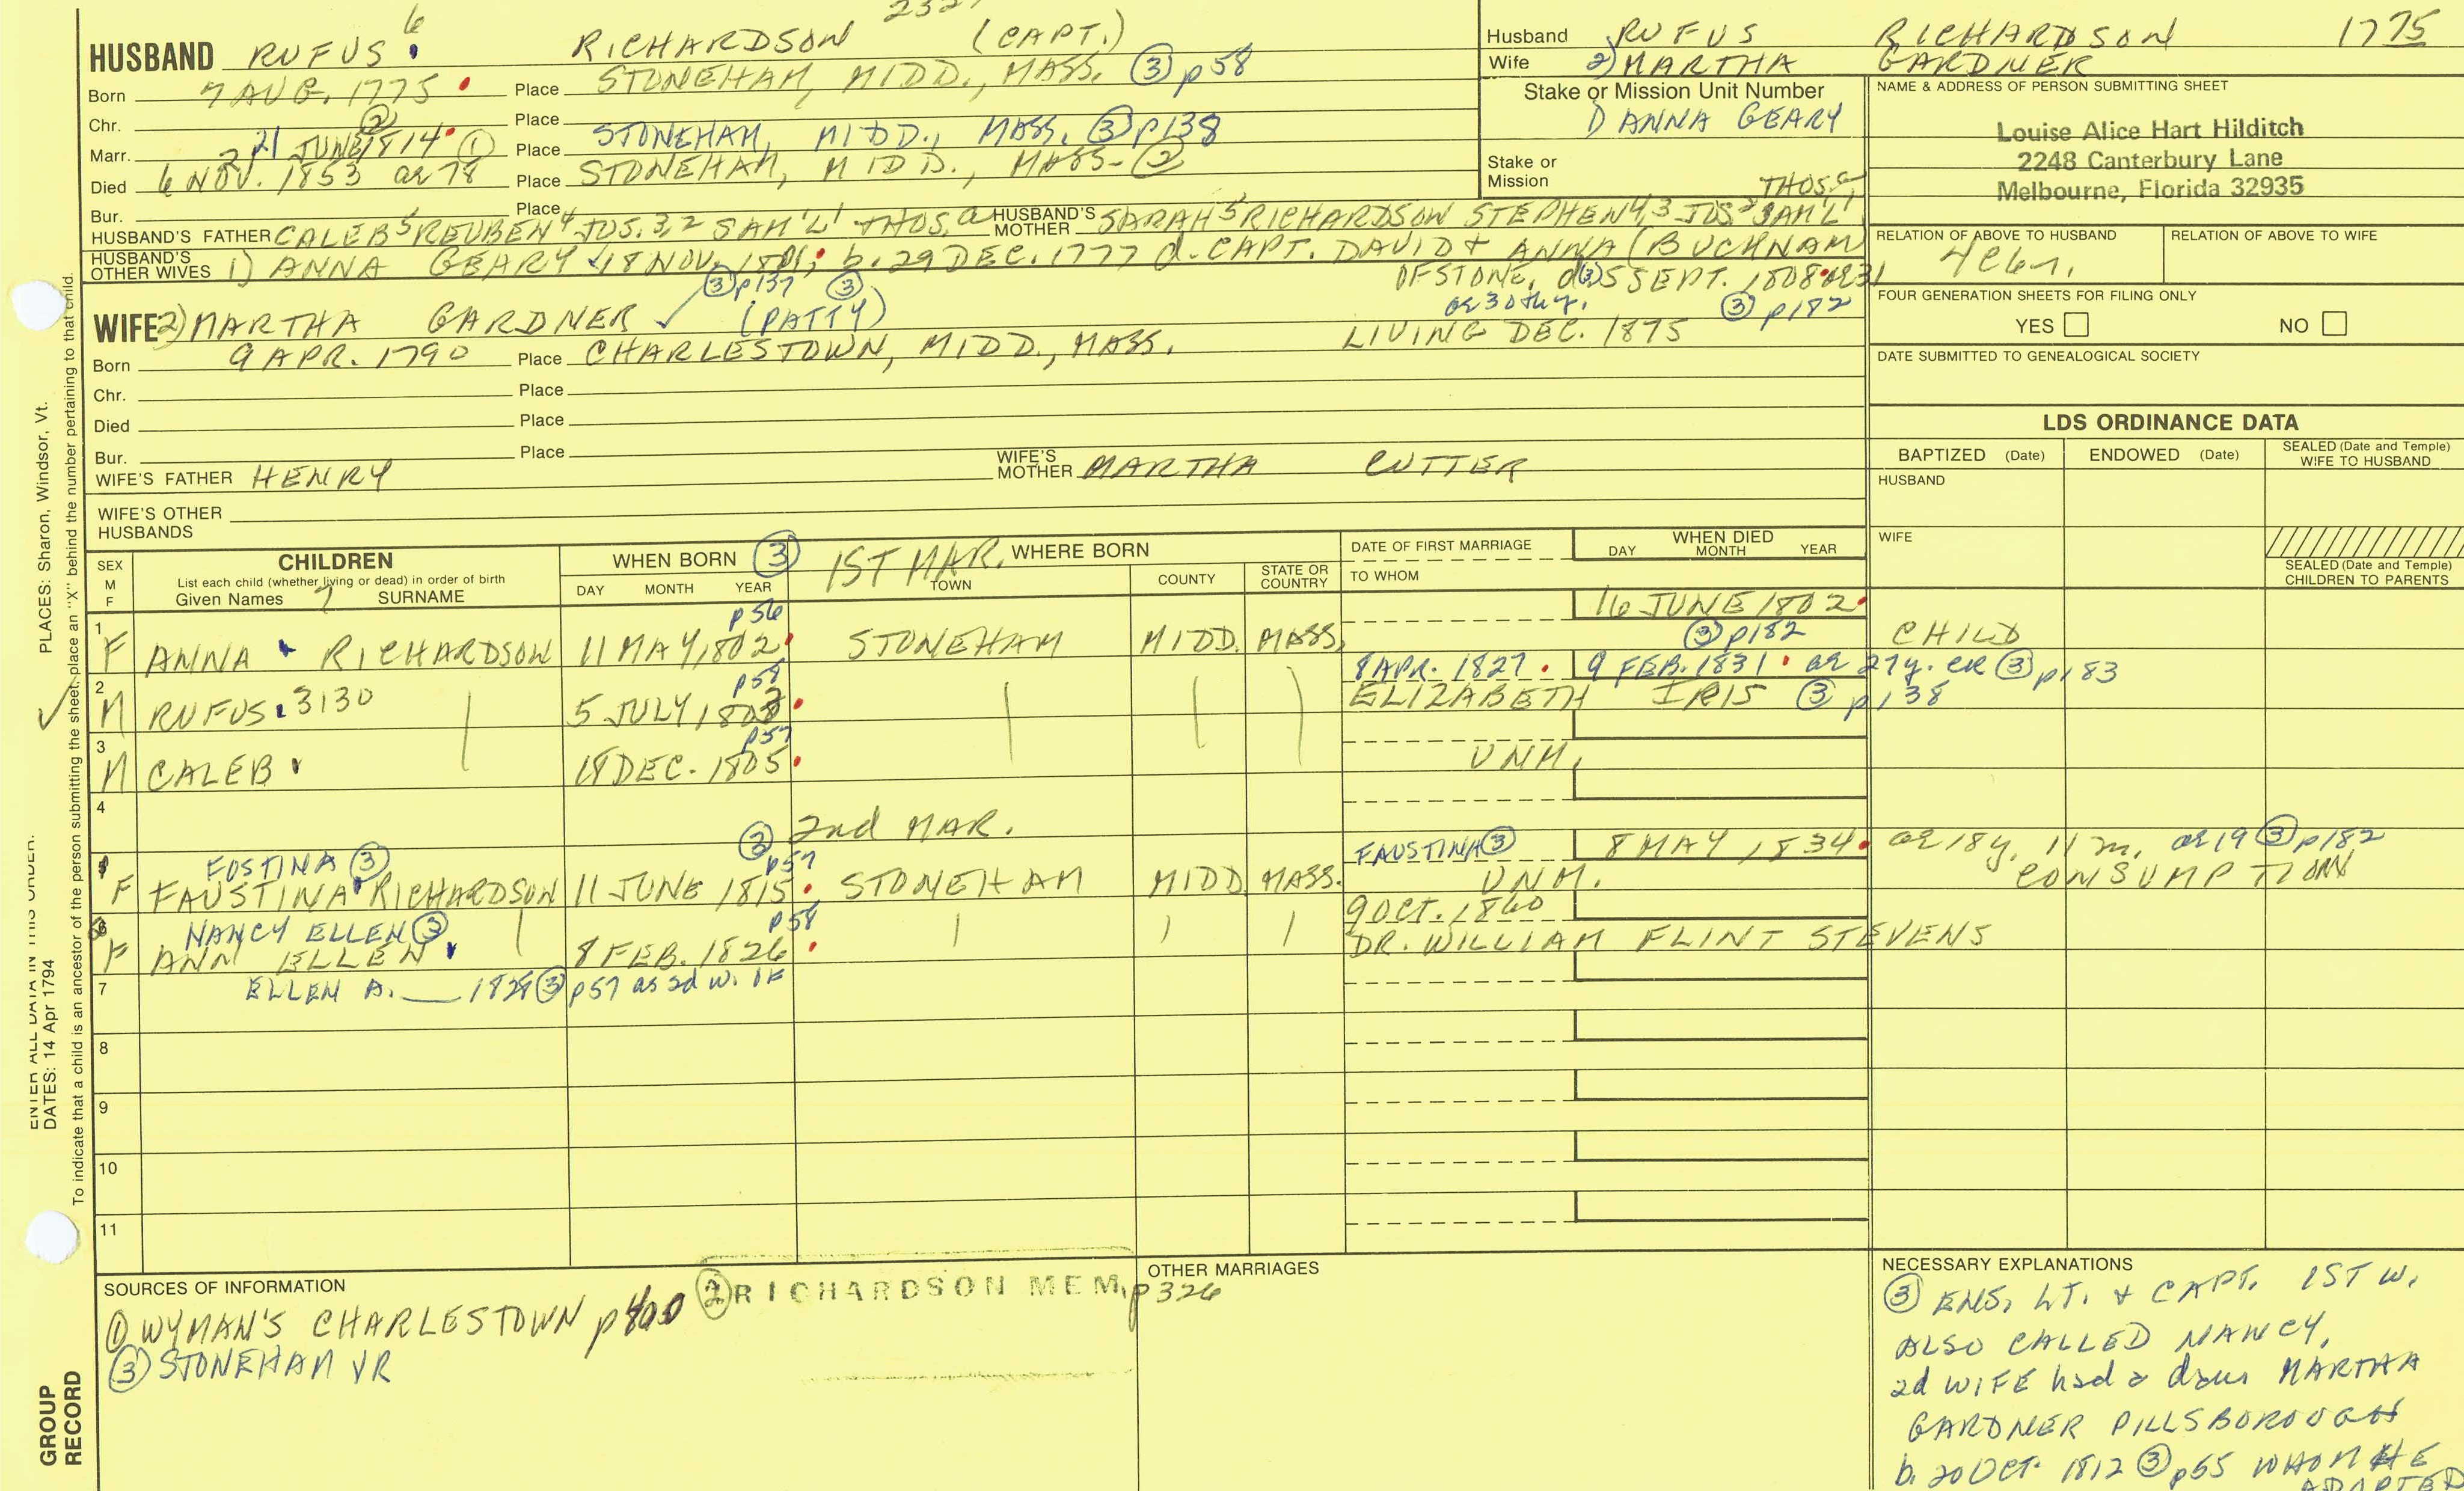 HUSBAND RUFUS 6 RICHARDSON (CAPT.)
Born 7 AUG. 1775 Place STONEHAM, MIDD., MASS. ③ p58
Chr. Place
Marr. 2) 21 JUNE 1814 ② ① Place STONEHAM, MIDD., MASS. ③ p138
Died 6 NOV. 1853 ae 78 Place STONEHAM, MIDD., MASS- ②
Bur. Place
HUSBAND'S FATHER CALEB5 REUBEN4 JOS.3,2 SAM'L1 THOS.a HUSBAND'S MOTHER SARAH5 RICHARDSON STEPHEN4,3 JOS2 SAM'L1 THOS.a
HUSBAND'S OTHER WIVES 1) ANNA GEARY 18 NOV. 1801; b. 29 DEC. 1777 d. CAPT. DAVID + ANNA (BUCKNAM
③ p137 ③ OF STONE. d ③ 5 SEPT. 1808 ae 31
ae 30 thy. ③ p182
WIFE 2) MARTHA GARDNER (PATTY) LIVING DEC. 1875
Born 9 APR. 1790 Place CHARLESTOWN, MIDD., MASS.
Chr. Place
Died Place
Bur. Place
WIFE'S FATHER HENRY WIFE'S MOTHER MARTHA CUTTER
WIFE'S OTHER HUSBANDS
Husband RUFUS RICHARDSON 1775
Wife 2) MARTHA GARDNER
Stake or Mission Unit Number
1) ANNA GEARY
Stake or Mission
NAME & ADDRESS OF PERSON SUBMITTING SHEET
Louise Alice Hart Hilditch
2248 Canterbury Lane
Melbourne, Florida 32935
RELATION OF ABOVE TO HUSBAND RELATION OF ABOVE TO WIFE
FOUR GENERATION SHEETS FOR FILING ONLY
YES NO
DATE SUBMITTED TO GENEALOGICAL SOCIETY
LDS ORDINANCE DATA
BAPTIZED (Date) ENDOWED (Date) SEALED (Date and Temple) WIFE TO HUSBAND
HUSBAND
WIFE
SEALED (Date and Temple) CHILDREN TO PARENTS
SEX M F CHILDREN List each child (whether living or dead) in order of birth Given Names SURNAME
7
WHEN BORN ③ DAY MONTH YEAR
1ST MAR. WHERE BORN TOWN COUNTY STATE OR COUNTRY
DATE OF FIRST MARRIAGE TO WHOM
WHEN DIED DAY MONTH YEAR
p56 16 JUNE 1802
1 F ANNA RICHARDSON 11 MAY 1802 STONEHAM MIDD. MASS. ③ p182 CHILD
p58 8 APR. 1827 9 FEB. 1831 ae 27y. CR ③ p183
2 M RUFUS 3130 5 JULY 1803 ELIZABETH IRIS ③ p138
p57
3 M CALEB 18 DEC. 1805 UNM.
4
③ 2nd MAR.
FOSTINA ③ p57 FAUSTINA ③ 8 MAY 1834 ae 18y. 11 m. ae 19 ③ p182
F FAUSTINA RICHARDSON 11 JUNE 1815 STONEHAM MIDD MASS. UNM. CONSUMPTION
NANCY ELLEN ③ p58 9 OCT. 1860
F ANN ELLEN 8 FEB. 1826 DR. WILLIAM FLINT STEVENS
7 ELLEN A. 1828 ③ p57 as 2d w. OF
8
9
10
11
SOURCES OF INFORMATION
① WYMAN'S CHARLESTOWN p400 ② RICHARDSON MEM. p326
③ STONEHAM VR
OTHER MARRIAGES
NECESSARY EXPLANATIONS
③ ENS, LT. + CAPT. 1ST W.
ALSO CALLED NANCY,
2d WIFE had a dau MARTHA
GARDNER PILLSBOROUGH
b. 20 OCT. 1812 ③ p55 WHOM HE
ADOPTED
DATES: 14 Apr 1794
PLACES: Sharon, Windsor, Vt.
To indicate that a child is an ancestor of the person submitting the sheet, place an "X" behind the number pertaining to that child.
GROUP RECORD